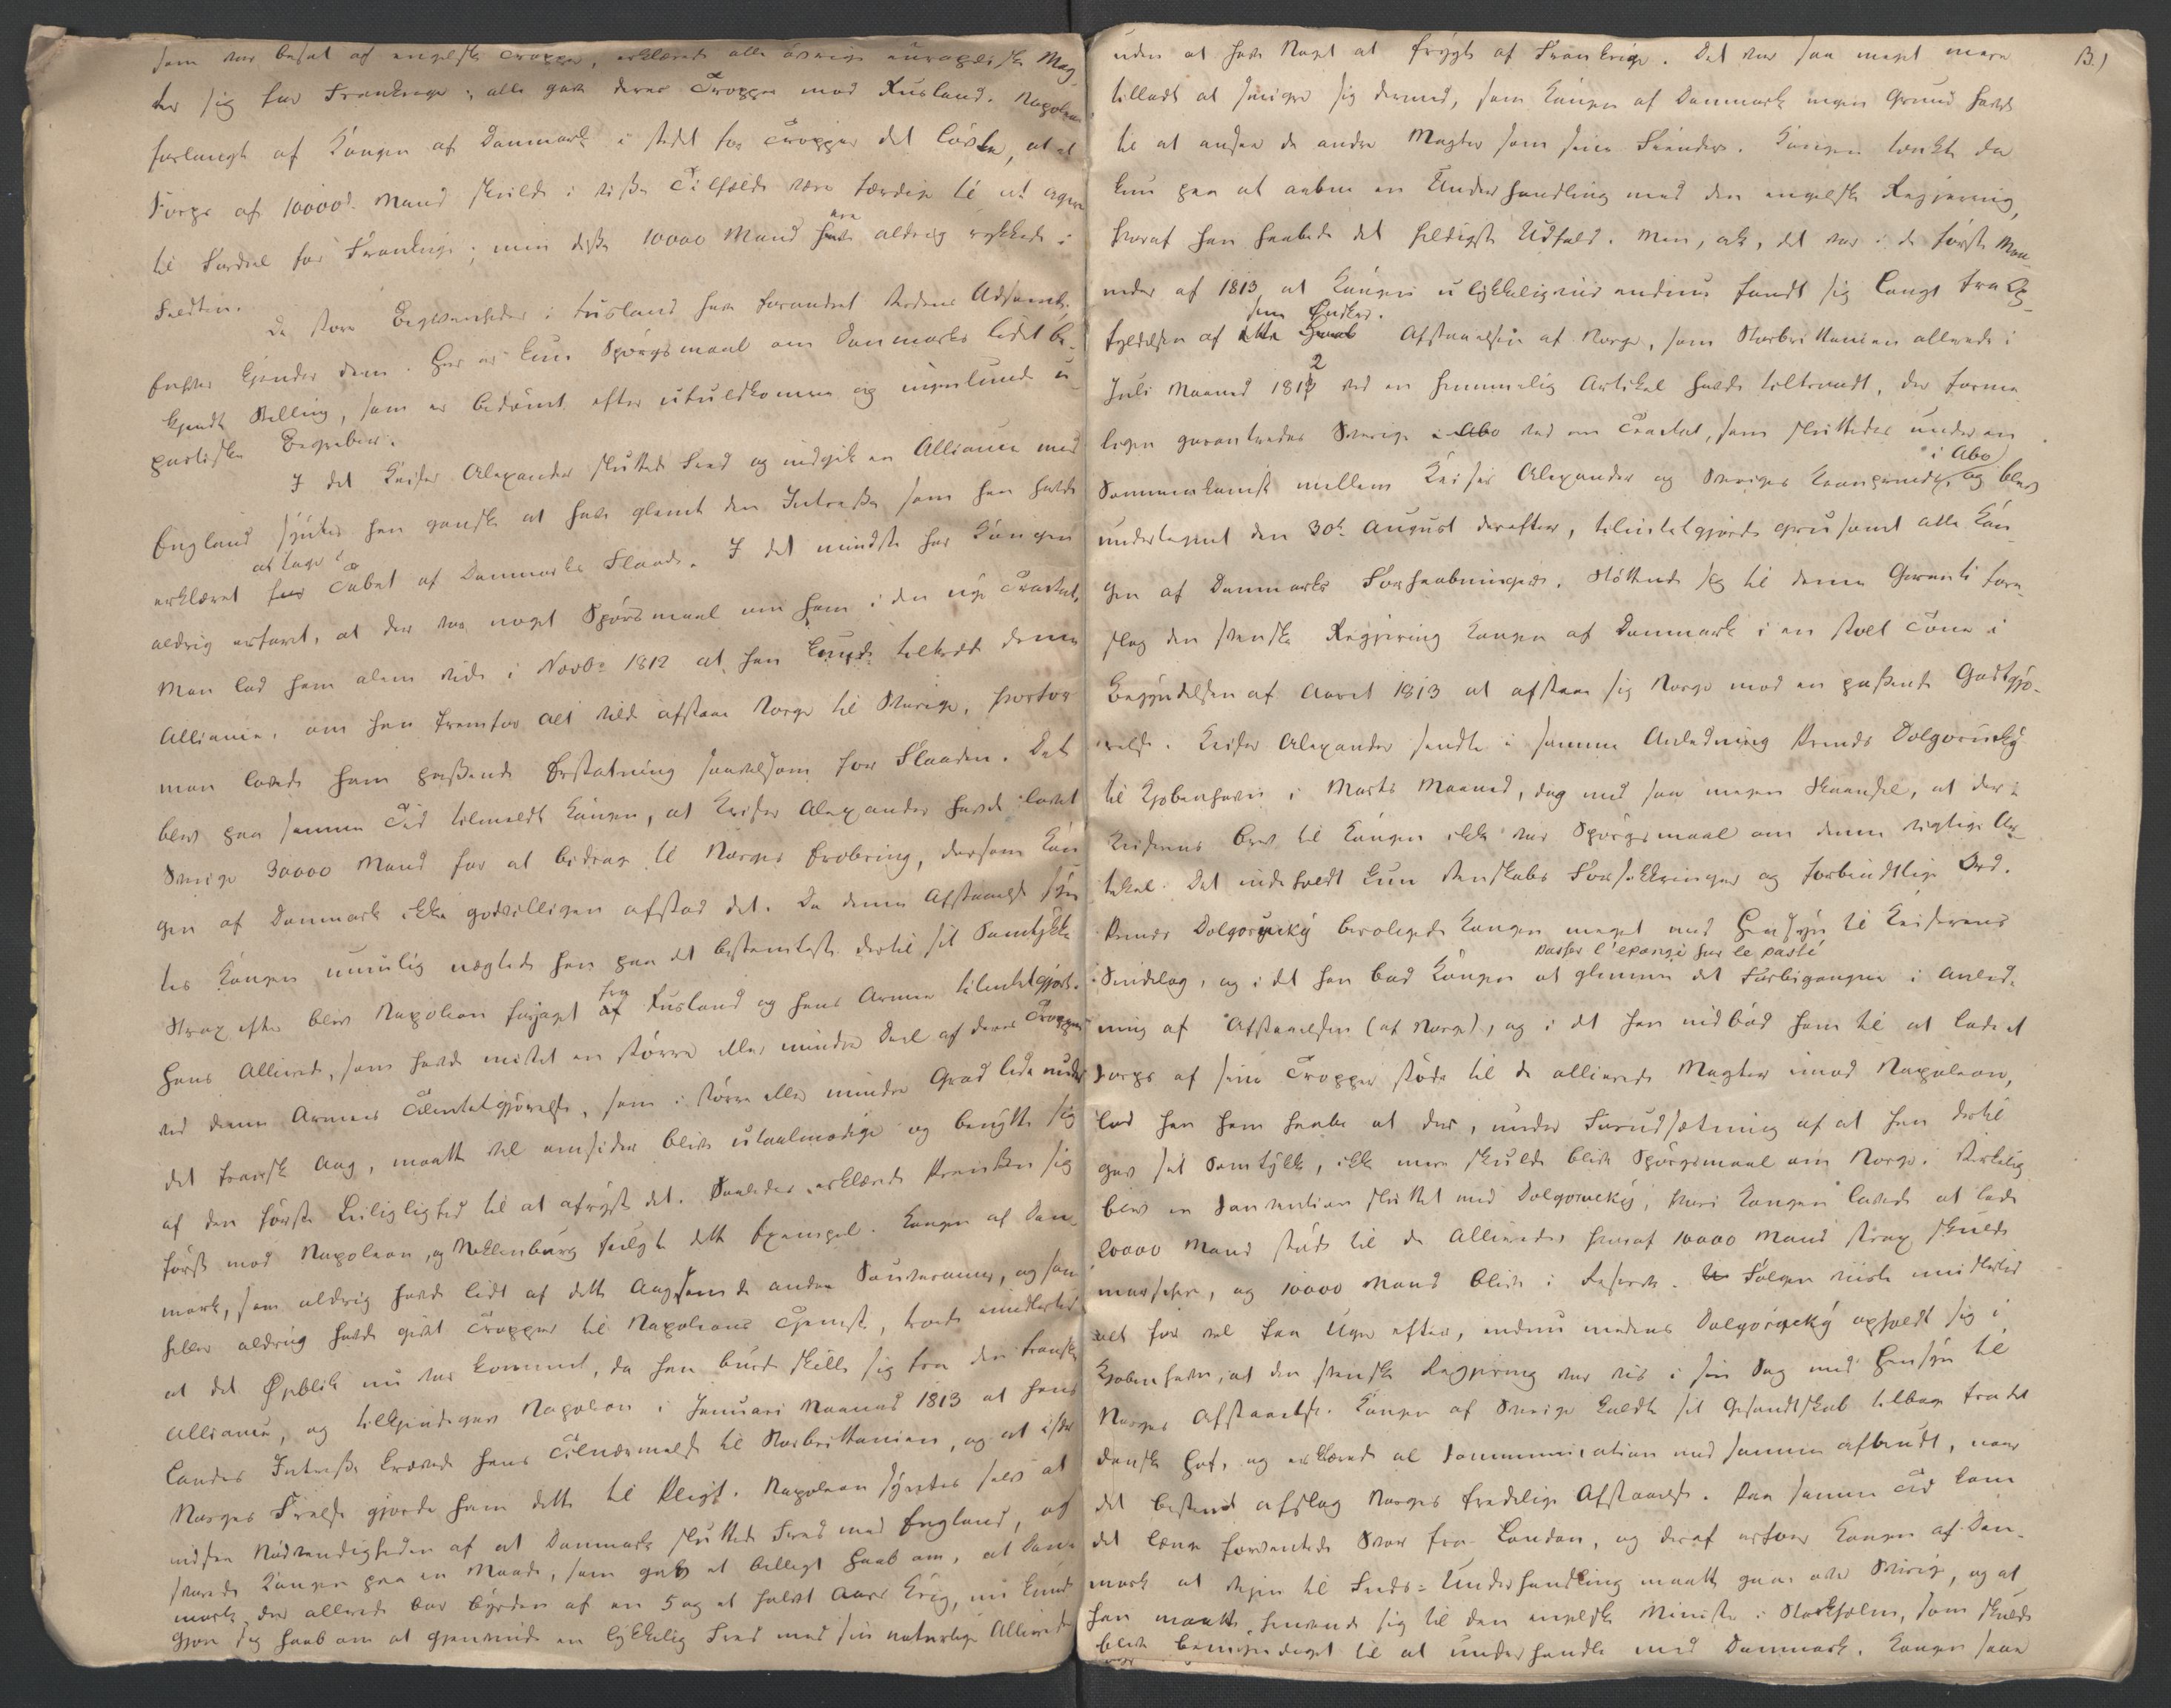 som var besat af engelske Tropper, erklærede alle øvrige europæiske Mag-
ter sig for Frankrige; alle gave deres Tropper mod Rusland. Napoleon
forlangte af Kongen af Danmark i stedet for Tropper det Løfte, at et
Corps af 10000d Mand skulde i visse Tilfælde være færdige til at agere
til Fordeel for Frankrige; men disse 10000 Mand ere aldrig rykkede i
Feldten.
De store Begivenheder i Rusland have forandret Verdens Udseende.
Enhver kjender dem. Her er kun Spørgsmaal om Danmarks lidet be-
kjendte Stilling, som er bedømt efter ufuldkomne og ingenlunde u-
partiske Begreber.
I det Keiser Alexander sluttede Fred og indgik en Alliance med
England syntes han ganske at have glemt den Interesse som han havde
erklæret at tage i Tabet af Danmarks Flaade. I det mindste har Kongen
aldrig erfaret, at der var noget Spørsmaal om ham i den nye Tractat.
Man lod ham alene vide i Novbr 1812 at han kunde tiltræde denne
Alliance, om han fremfor alt vilde afstaae Norge til Sverige, hvorfor
man lovede ham passende Erstatning saavelsom for Flaaden. Det
blev paa samme Tid tilmeldt Kongen, at Keiser Alexander havde lovet
Sverige 30000 Mand for at bidrage til Norges Erobring, dersom Kon
gen af Danmark ikke godvilligen afstod det. Da denne Afstaaelse syn
tes Kongen umulig nægtede han paa det bestemteste dertil sit Samtykke
Strax efter blev Napoleon forjaget fra Rusland og hans Armee tilintetgjort.
Hans Allierede, som havde mistet en større eller mindre Deel af deres Tropper
ved denne Armees Tilintetgjørelse, som i større eller mindre Grad lede under
det fransk Aag, maatte vel omsider blive utaalmodige og benytte sig
af den første Leilighed til at afryste det. Saaledes erklærede Preussen sig
først mod Napoleon, og Meklenburg fulgte dette Exempel. Kongen af Dan-
mark, som aldrig havde lidt af dette Aag som de andre Souverainer, og som
heller aldrig havde givet Tropper til Napoleons Tjeneste, troede imidlertid
at det Øieblik nu var kommet, da han burde skille sig fra den franske
Alliance, og tilkjendegav Napoleon i Januari Maaned 1813 at hans
Landes Interesse krævede hans Tilnærmelse til Storbrittanien, og at især
Norges Frelse gjorde ham dette til Pligt. Napoleon syntes selv at
indsee Nødvendigheden af at Danmark sluttede Fred med England, og
svarede Kongen paa en Maade, som gav et billigt Haab om, at Dan-
mark, der allerede bar Byrden af en 5 og et halvt Aars Krig, nu kunde
gjøre sig Haab om at gjenvinde en lykkelig Fred med sin naturlige Allierede
13.)
uden at have Noget at frygte af Frankrige. Det var saa meget mere
tilladt at smigre sig dermed, som Kongen af Danmark ingen Grund havde
til at ansee de andre Magter som sine Fiender. Kongen tænkte da
kun paa at aabne en Underhandling med den engelske Regjering,
hvoraf han haabede det heldigste Udfald. Men, ak, det var i de første Maa-
neder af 1813 at Kongen ulykkeligviis endnu fandt sig langt fra Op-
sine Ønsker.
fyldelsen af Afstaaelsen af Norge, som Storbrittanien allerede i
Juli Maaned 1812 ved en hemmelig Artikel havde tiltraadt, der forme
ligen garanteredes Sverige ved en Tractat, som sluttedes under en
Sammenkomst mellem Keiser Alexander og Sveriges Kronprinds, i Abo og blev
undertegnet den 30te August derefter, tilintetgjorde grusomt alle Kon
gen af Danmarks Forhaabninger. Støttende sig til denne Garanti fore-
slog den svenske Regjering Kongen af Danmark i en stolt Tone i
Begyndelsen af Aaret 1813 at afstaae sig Norge mod en passende Godtgjø-
relse. Keiser Alexander sendte i samme Anledning Prinds Dolgorucky
til Kjøbenhavn i Marts Maaned, dog med saa megen Skaansel, at der i
Keiserens Brev til Kongen ikke var Spørgsmaal om denne vigtige Ar-
tikel. Det indeholdt kun Venskabs Forsikkringer og forbindtlige Ord.
Prinds Dolgorucky beroligede Kongen meget med Hensyn til Keiserens
passer l'éponge sur le passé
Sindelag, og i det han bad Kongen at glemme det Forbigangne i Anled-
ning af Afstaaelsen (af Norge), og i det han indbød ham til at lade et
Corps af sine Tropper støde til de allierede Magter imod Napoleon,
lod han ham haabe at der, under Forudsætning af at han dertil
gav sit Samtykke, ikke mere skulde blive Spørgsmaal om Norge. Virkelig
blev en Convention sluttet med Dolgorucky, hvori Kongen lovede at lade
20000 Mand støde til de Allierede, hvoraf 10000 Mand strax skulde
marschere, og 10000 Mand blive i Reserve. Følgen viiste imidlertid
alt før vel faa Uger efter, endnu medens Dolgorucky opholdt sig i
Kjøbenhavn, at den svenske Regjering var vis i sin Sag med Hensyn til
Norges Afstaaelse. Kongen af Sverige kaldte sit Gesandtskab tilbage fra det
danske Hof, og erklærede al Communication med samme afbrudt, naar
det bestemt afslog Norges fredelige Afstaaelse. Paa samme Tid kom
det længe forventede Svar fra London, og deraf erfoer Kongen af Dan-
mark at Veien til Freds-Underhandling maatte gaae over Sverig, og at
han maatte henvende sig til den engelske Minister i Stockholm, som skulde
blive bemyndiget til at underhandle med Danmark. Kongen saae